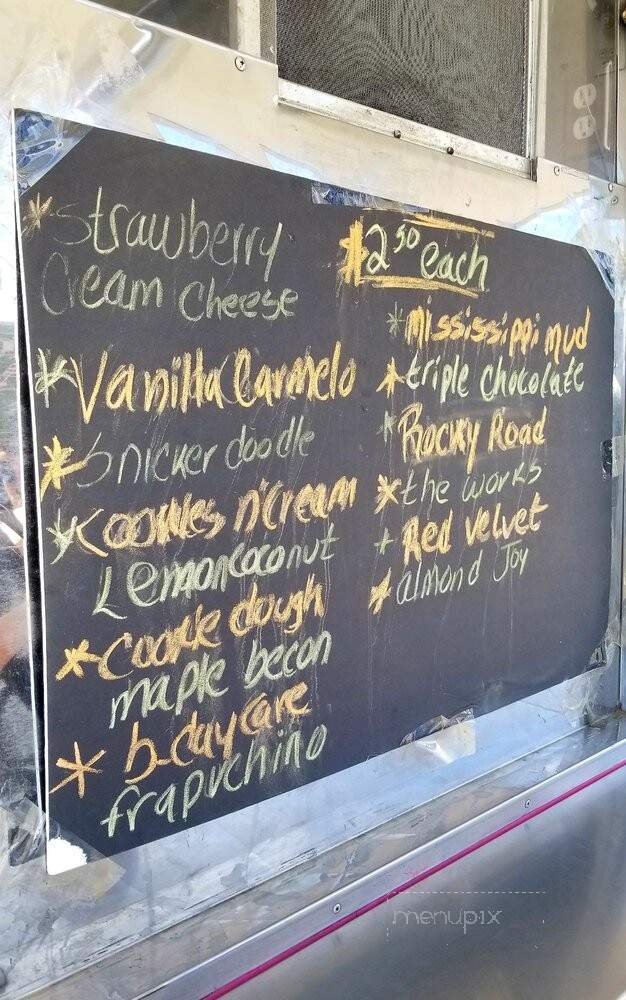 * Strawberry
Cream Cheese
* Vanilla Carmelo
* Snickerdoodle
* Cookies n' Cream
Lemon coconut
* Cookie dough
maple becon
* b-day care
frapuchino
$2 50 each
* Mississippi mud
* triple chocolate
* Rocky Road
* the works
* Red velvet
* almond Joy
menupix